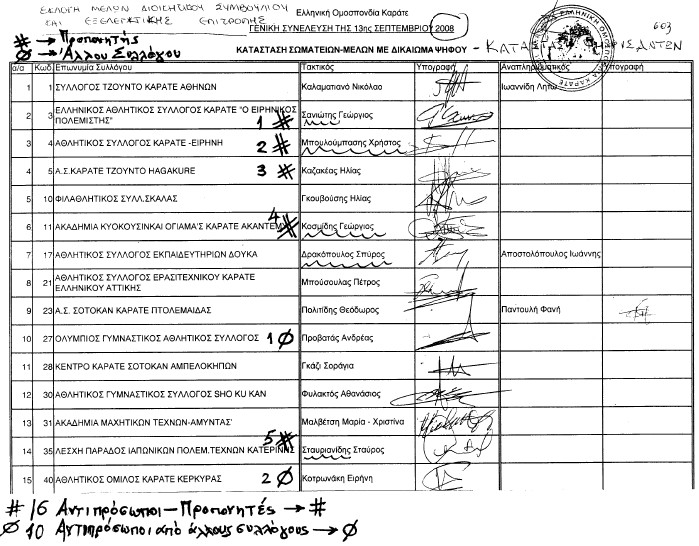 ΕΚΛΟΓΗ ΜΕΛΩΝ ΔΙΟΙΚΗΤΙΚΟΥ ΣΥΜΒΟΥΛΙΟΥ
ΚΑΙ ΕΞΕΛΕΓΚΤΙΚΗΣ ΕΠΙΤΡΟΠΗΣ
Ελληνική Ομοσπονδία Καράτε
ΓΕΝΙΚΗ ΣΥΝΕΛΕΥΣΗ ΤΗΣ 13ης ΣΕΠΤΕΜΒΡΙΟΥ 2008
# → Προπονητής
Ø → Άλλου Συλλόγου
ΚΑΤΑΣΤΑΣΗ ΣΩΜΑΤΕΙΩΝ-ΜΕΛΩΝ ΜΕ ΔΙΚΑΙΩΜΑ ΨΗΦΟΥ
603
α/α Κωδ. Επωνυμία Συλλόγου Τακτικός Υπογραφή Αναπληρωματικός Υπογραφή
1 1 ΣΥΛΛΟΓΟΣ ΤΖΟΥΝΤΟ ΚΑΡΑΤΕ ΑΘΗΝΩΝ Καλαματιανό Νικόλαο Ιωαννίδη Λητώ
2 3 ΕΛΛΗΝΙΚΟΣ ΑΘΛΗΤΙΚΟΣ ΣΥΛΛΟΓΟΣ ΚΑΡΑΤΕ "Ο ΕΙΡΗΝΙΚΟΣ
ΠΟΛΕΜΙΣΤΗΣ" 1 # Σανιώτης Γεώργιος
3 4 ΑΘΛΗΤΙΚΟΣ ΣΥΛΛΟΓΟΣ ΚΑΡΑΤΕ -ΕΙΡΗΝΗ 2 # Μπουλούμπασης Χρήστος
4 5 Α.Σ.ΚΑΡΑΤΕ ΤΖΟΥΝΤΟ HAGAKURE 3 # Καζακέας Ηλίας
5 10 ΦΙΛΑΘΛΗΤΙΚΟΣ ΣΥΛ.ΣΚΑΛΑΣ Γκουβούσης Ηλίας
6 11 ΑΚΑΔΗΜΙΑ ΚΥΟΚΟΥΣΙΝΚΑΙ ΟΓΙΑΜΑ'Σ ΚΑΡΑΤΕ ΑΚΑΝΤΕΜΥ 4 # Κοσμίδης Γεώργιος
7 17 ΑΘΛΗΤΙΚΟΣ ΣΥΛΛΟΓΟΣ ΕΚΠΑΙΔΕΥΤΗΡΙΩΝ ΔΟΥΚΑ Δρακόπουλος Σπύρος Αποστολόπουλος Ιωάννης
8 21 ΑΘΛΗΤΙΚΟΣ ΣΥΛΛΟΓΟΣ ΕΡΑΣΙΤΕΧΝΙΚΟΥ ΚΑΡΑΤΕ
ΕΛΛΗΝΙΚΟΥ ΑΤΤΙΚΗΣ Μπούσουλας Πέτρος
9 23 Α.Σ. ΣΟΤΟΚΑΝ ΚΑΡΑΤΕ ΠΤΟΛΕΜΑΙΔΑΣ Πολιτίδης Θεόδωρος Παντουλή Φανή
10 27 ΟΛΥΜΠΙΟΣ ΓΥΜΝΑΣΤΙΚΟΣ ΑΘΛΗΤΙΚΟΣ ΣΥΛΛΟΓΟΣ 1 Ø Προβατάς Ανδρέας
11 28 ΚΕΝΤΡΟ ΚΑΡΑΤΕ ΣΟΤΟΚΑΝ ΑΜΠΕΛΟΚΗΠΩΝ Γκάζι Σοράγια
12 30 ΑΘΛΗΤΙΚΟΣ ΓΥΜΝΑΣΤΙΚΟΣ ΣΥΛΛΟΓΟΣ SHO KU KAN Φυλακτός Αθανάσιος
13 31 ΑΚΑΔΗΜΙΑ ΜΑΧΗΤΙΚΩΝ ΤΕΧΝΩΝ-ΑΜΥΝΤΑΣ' Μαλβέτση Μαρία - Χριστίνα
14 35 ΛΕΣΧΗ ΠΑΡΑΔΟΣ ΙΑΠΩΝΙΚΩΝ ΠΟΛΕΜ.ΤΕΧΝΩΝ ΚΑΤΕΡΙΝΗΣ 5 # Σταυριανίδης Σταύρος
15 40 ΑΘΛΗΤΙΚΟΣ ΟΜΙΛΟΣ ΚΑΡΑΤΕ ΚΕΡΚΥΡΑΣ 2 Ø Κοτρωνάκη Ειρήνη
# 16 Αντιπρόσωποι – Προπονητές → #
Ø 10 Αντιπρόσωποι από άλλους συλλόγους → Ø